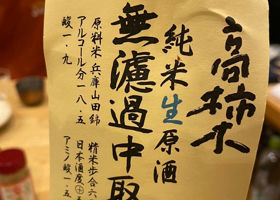 高柿木
純米生原酒
無濾過中取
原料米兵庫山田錦 精米歩合六
アルコール分一八.五 日本酒度十五
酸一.九 アミノ酸一.五